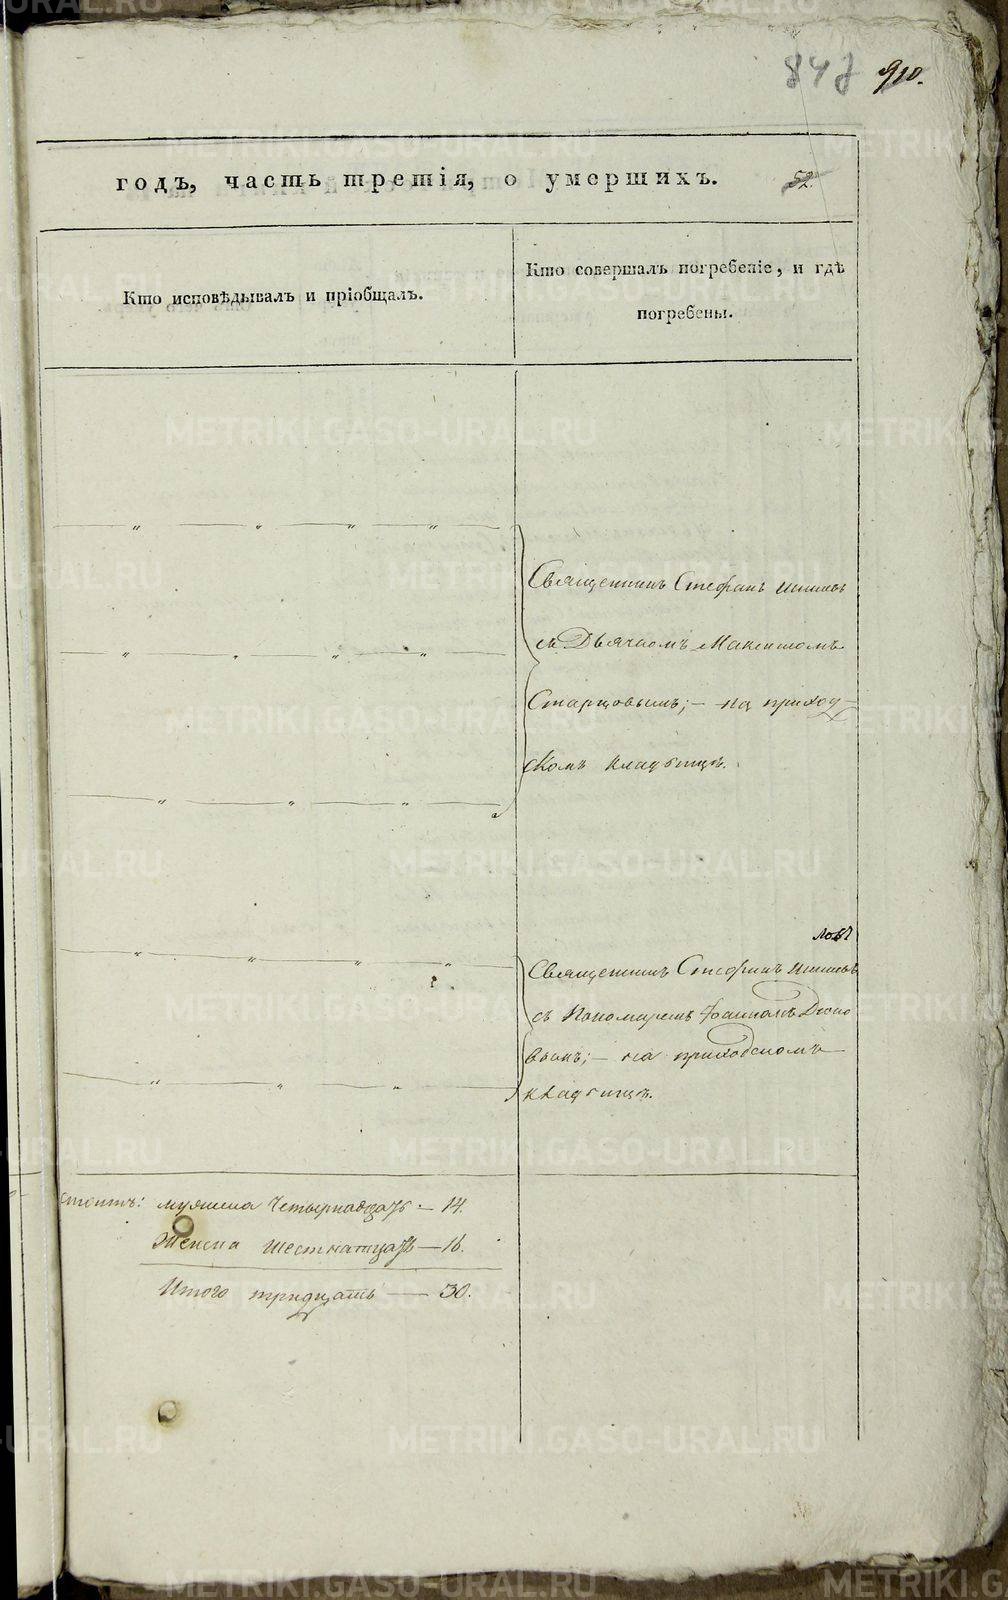 847 910.
годъ, часть третія, о умершихъ. 52.
Кто исповѣдывалъ и пріобщалъ.
Кто совершалъ погребеніе, и гдѣ
погребены.
Священникъ Стефанъ
съ Дьячкомъ Максимомъ
Старцовымъ; — на приход-
скомъ кладбищѣ.
Священникъ Стефанъ
съ Пономаремъ
вымъ; — на приходскомъ
кладбищѣ.
мужеска четырнадцать — 14.
Женска шестнатцать — 16.
Итого тридцать — 30.
METRIKI.GASO-URAL.RU